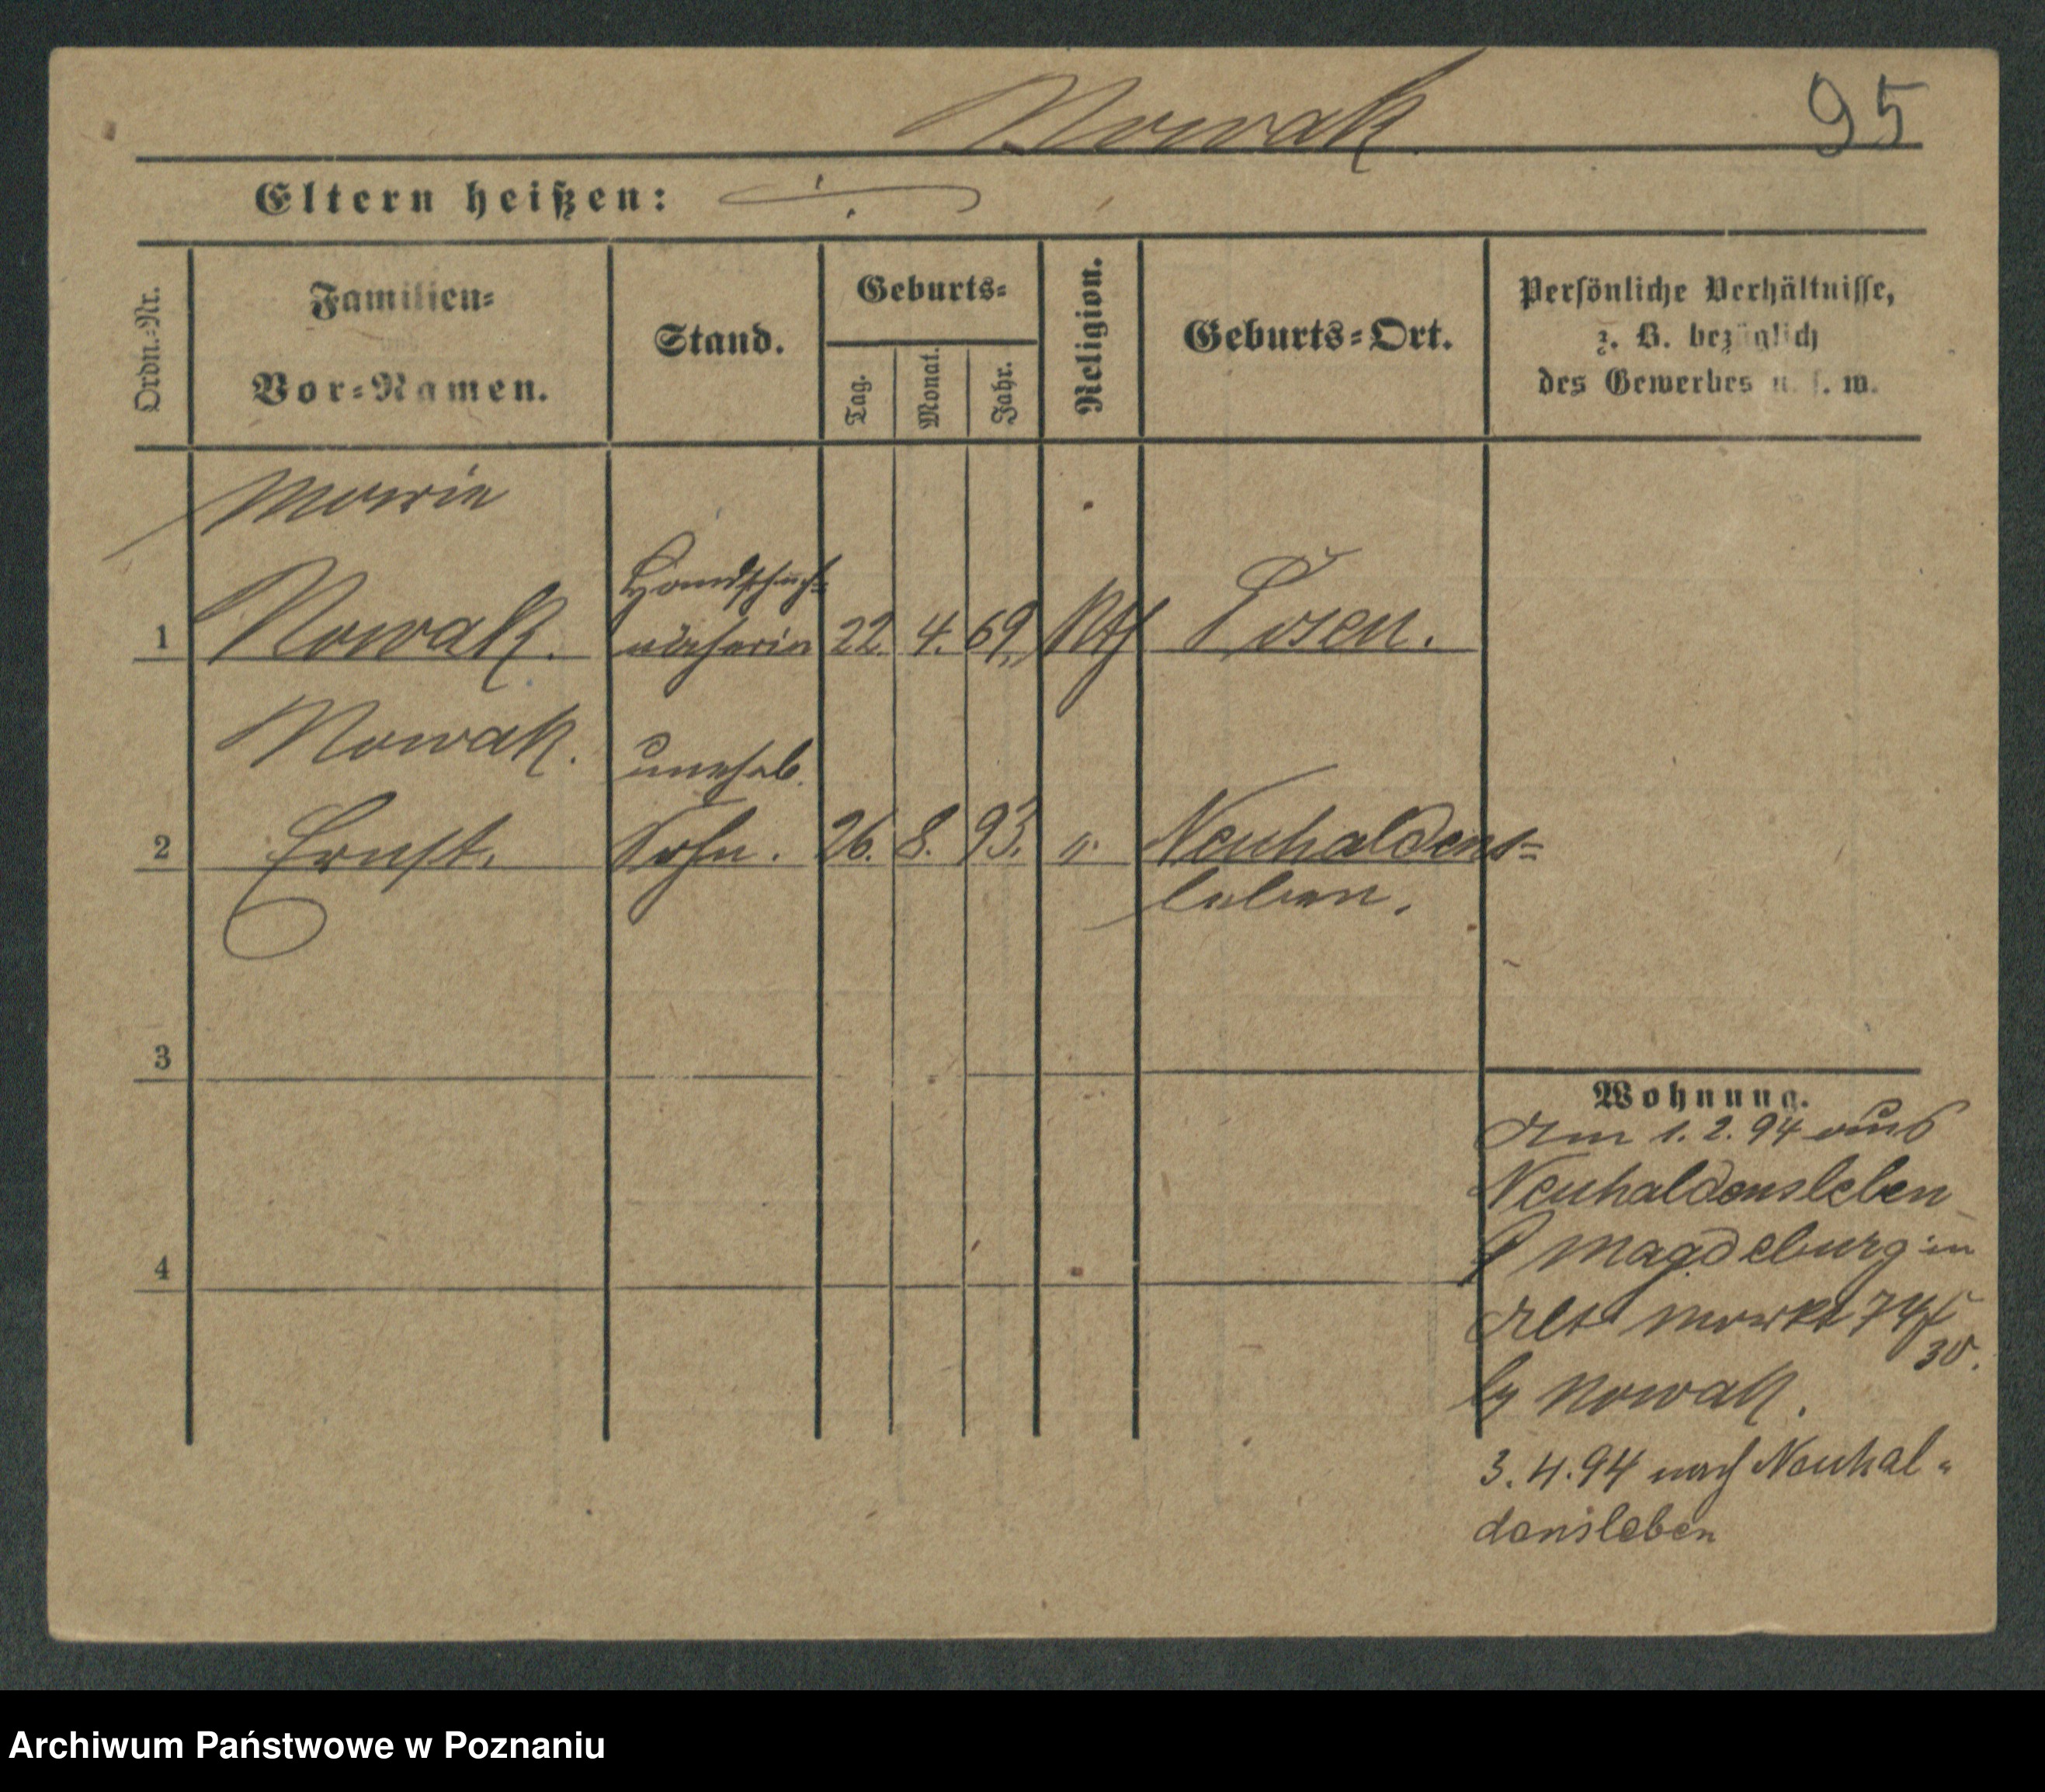 Nowak
95
Eltern heißen:
Ordn.-Nr.
Familien-
und
Vor-Namen.
Stand.
Geburts-
Tag.
Monat.
Jahr.
Religion.
Geburts-Ort.
Persönliche Verhältnisse,
z. B. bezüglich
des Gewerbes u. s. w.
Marie
Handschuh-
1 Nowak. näherin 22. 4. 69. Kth Posen.
Nowak. unehel.
2 Ernst. Sohn. 26. 8. 93. " Neuhaldens-
leben.
3
4
Wohnung.
Am 1. 2. 94 aus
Neuhaldensleben
Magdeburg in
Alt Markt 74/
30.
by Nowak.
3. 4. 94 nach Neuhal-
densleben
Archiwum Państwowe w Poznaniu